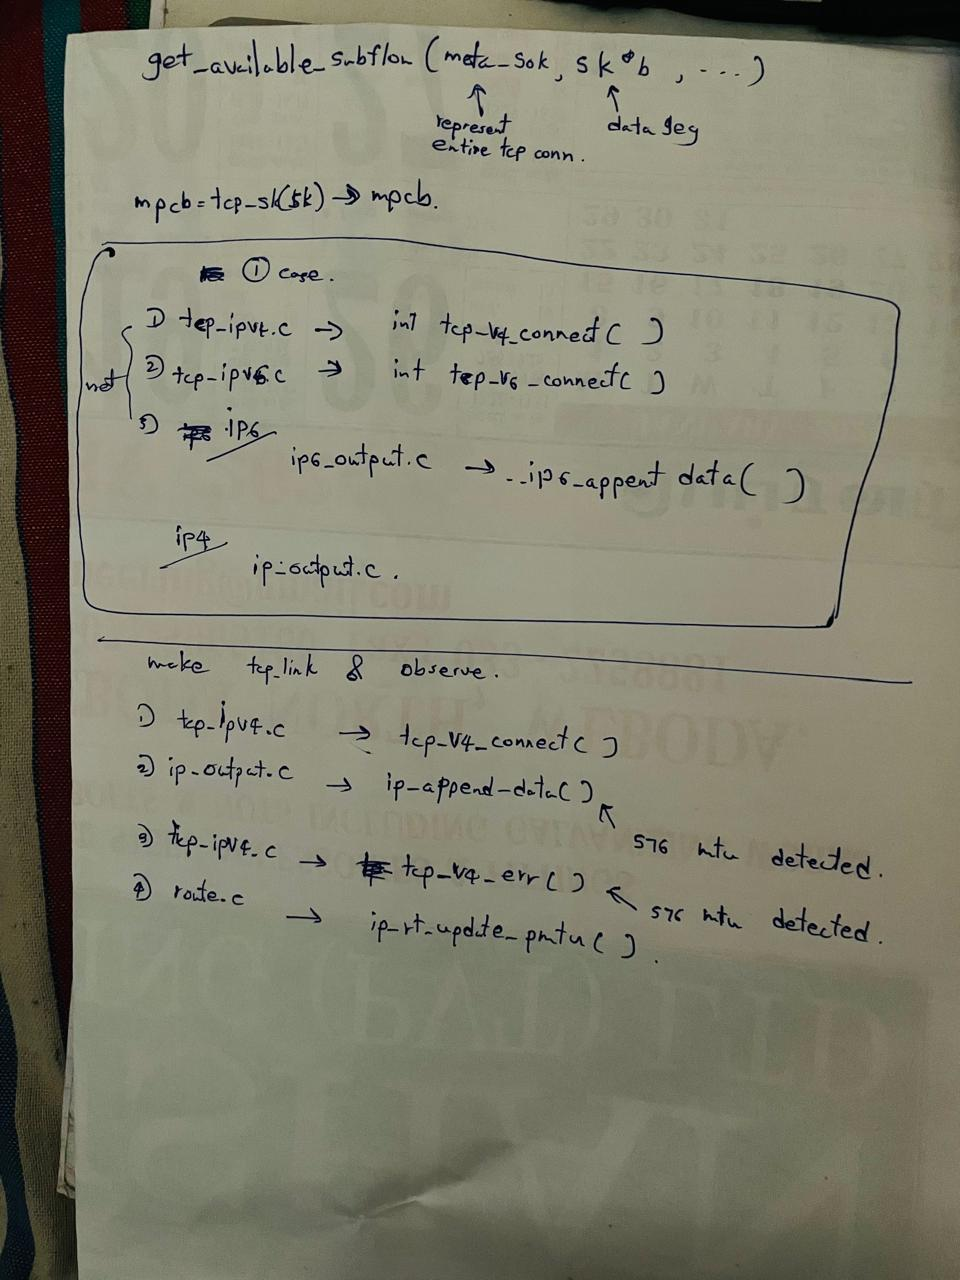 get_available_subflow (meta_sok, sk*b, ...)
↑ ↑
represent data seg
entire tcp conn.
mpcb = tcp_sk(sk) → mpcb.
① case.
net
1) tcp_ipv4.c → int tcp_v4_connect( )
2) tcp_ipv6.c → int tcp_v6_connect( )
3) ip6
ip6_output.c → __ip6_appent data( )
ip4
ip_output.c.
make tcp_link & observe.
1) tcp_ipv4.c → tcp_v4_connect( )
2) ip_output.c → ip_append_data( )
576 mtu detected.
3) tcp_ipv4.c → tcp_v4_err( )
576 mtu detected.
4) route.c → ip_rt_update_pmtu( ).